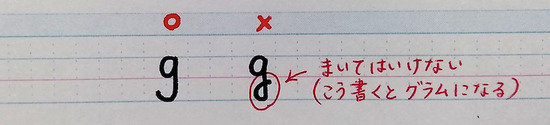 ○ ×
g g ← まいてはいけない
(こう書くとグラムになる)